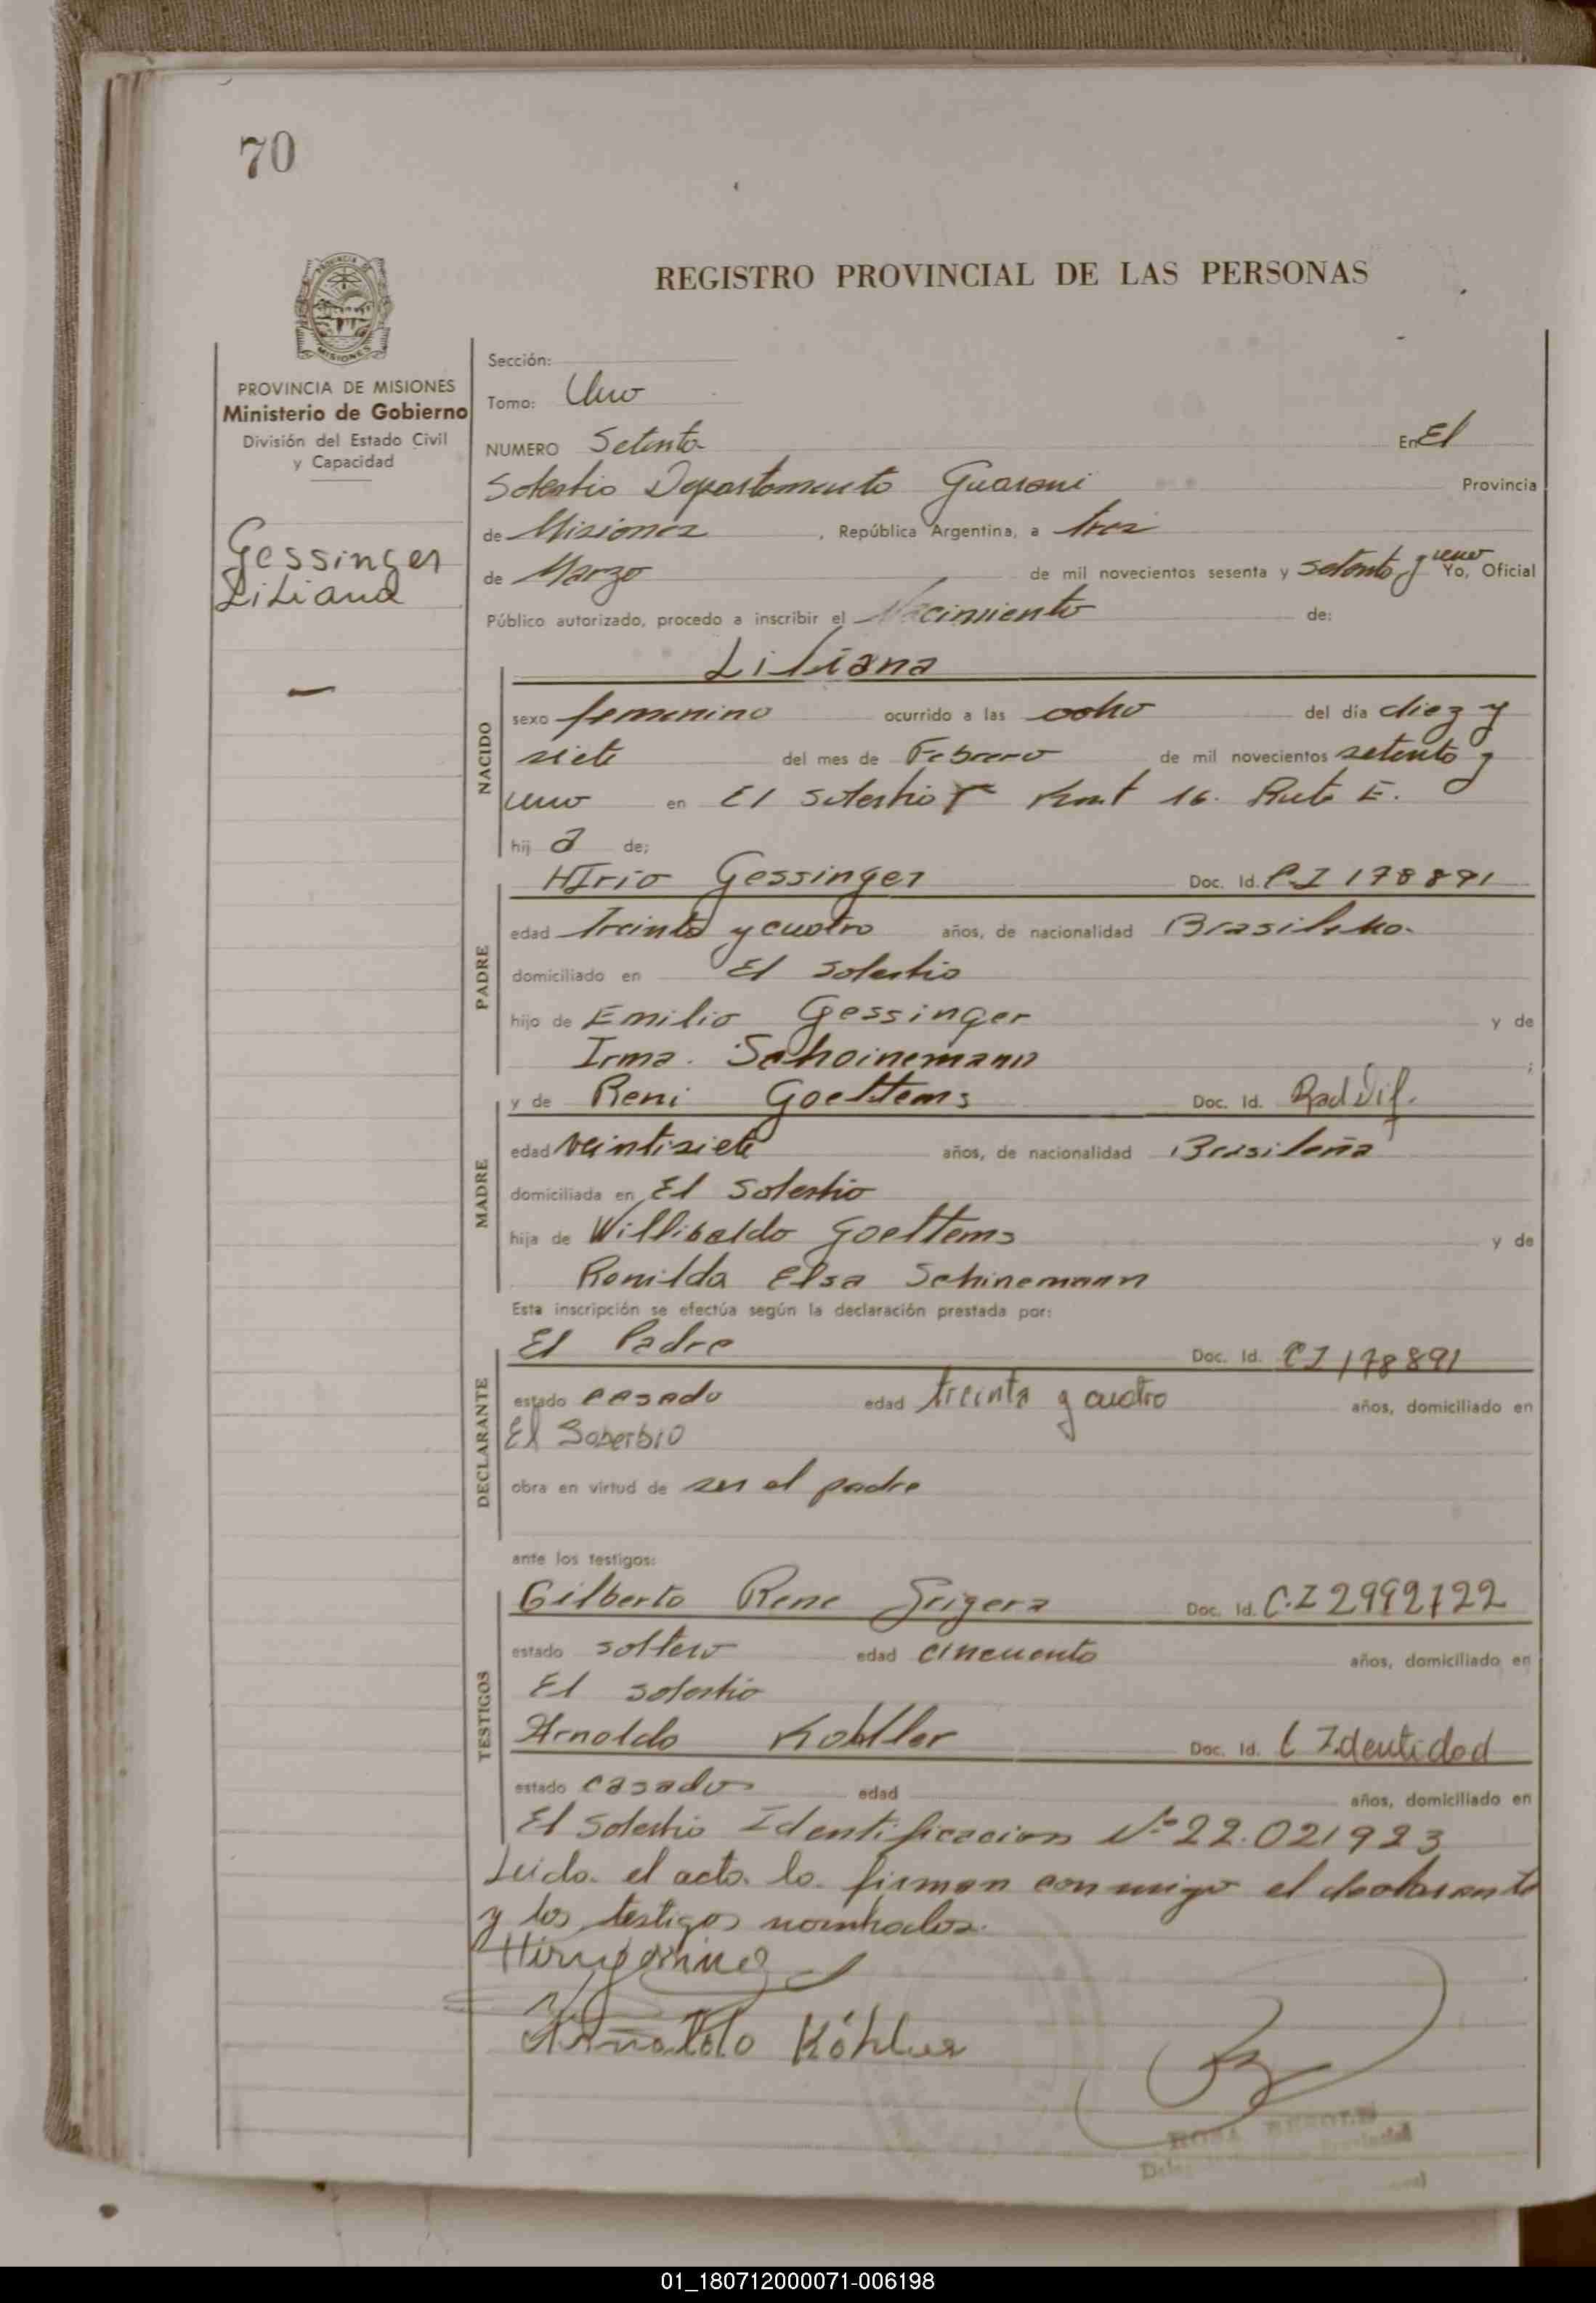 70
REGISTRO PROVINCIAL DE LAS PERSONAS
PROVINCIA DE MISIONES
MISIONES
PROVINCIA DE MISIONES
Ministerio de Gobierno
División del Estado Civil
y Capacidad
Gessinger
Liliana
Sección:
Tomo: Uno
NUMERO Setenta En El
Soberbio Departamento Guarani Provincia
de Misiones , República Argentina, a tres
de Marzo de mil novecientos sesenta y setenta y uno Yo, Oficial
Público autorizado, procedo a inscribir el Nacimiento de:
Liliana
NACIDO
sexo femenino ocurrido a las ocho del día diez y
siete del mes de Febrero de mil novecientos setenta y
uno en El Soberbio 16. Ruta E.
hij a de;
PADRE
Gessinger Doc. Id. C.I 178891
edad treinta y cuatro años, de nacionalidad Brasileño.
domiciliado en El Soberbio
hijo de Emilio Gessinger y de
Irma. Schoinemann ;
MADRE
y de Reni Goettems Doc. Id.
edad veintisiete años, de nacionalidad Brasileña
domiciliada en El Soberbio
hija de Willibaldo Goettems y de
Romilda Elsa Schinemann
Esta inscripción se efectúa según la declaración prestada por:
DECLARANTE
El Padre Doc. Id. CI 178891
estado casado edad treinta y cuatro años, domiciliado en
El Soberbio
obra en virtud de ser el padre
ante los testigos:
TESTIGOS
Gilberto Rene Grigera Doc. Id. C.I 2992722
estado soltero edad cincuenta años, domiciliado en
El Soberbio
Arnoldo Kohller Doc. Id. C Identidad
estado casado edad años, domiciliado en
El Soberbio Identificacion Nº 22.021923
Leida el acta lo firman con migo el declarante
y los testigos nombrados.
Arnoldo Köhler
ROSA
01_180712000071-006198